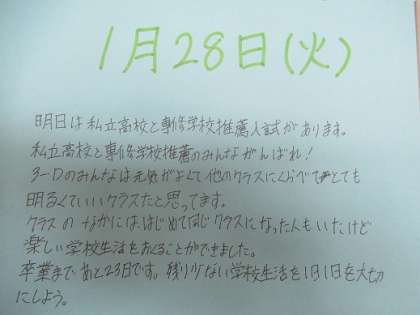 1月28日(火)
明日は私立高校と専修学校推薦入試があります。
私立高校と専修学校推薦のみんながんばれ!
3-Dのみんなは元気がよくて他のクラスにくらべてとても
明るくていいクラスだと思ってます。
クラスのなかには、はじめて同じクラスになった人もいたけど
楽しい学校生活をおくることができました。
卒業まであと23日です。残り少ない学校生活を1日1日を大切
にしよう。